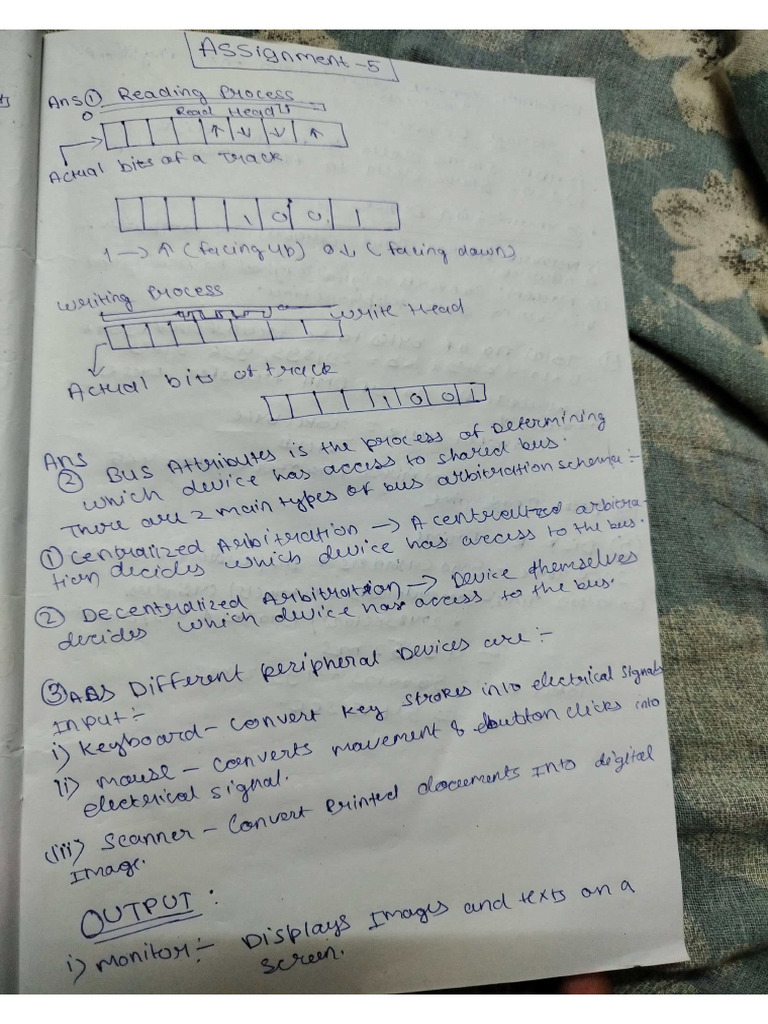 Assignment-5
Ans ① Reading Process
0 Read Head
↑ ↓ ↓ ↑
Actual bits of a Track
1 0 0 1
1 → ↑ (facing up) 0 ↓ (facing down)
Writing Process
Write Head
Actual bits of track
1 0 0 1
Ans
② Bus Attributes is the process of Determining
which device has access to shared bus.
There are 2 main types of bus arbitration scheme :-
① Centralized Arbitration → A centralized arbitra-
tion decides which device has access to the bus.
② Decentralized Arbitration → Device themselves
decides which device has access to the bus.
③ Ans Different Peripheral Devices are :-
Input :-
i) Keyboard - Convert key strokes into electrical signals
ii) Mouse - Converts movement & button clicks into
electrical signal.
(iii) Scanner - Convert Printed documents Into digital
Image.
OUTPUT :
i) Monitor :- Displays Images and texts on a
screen.